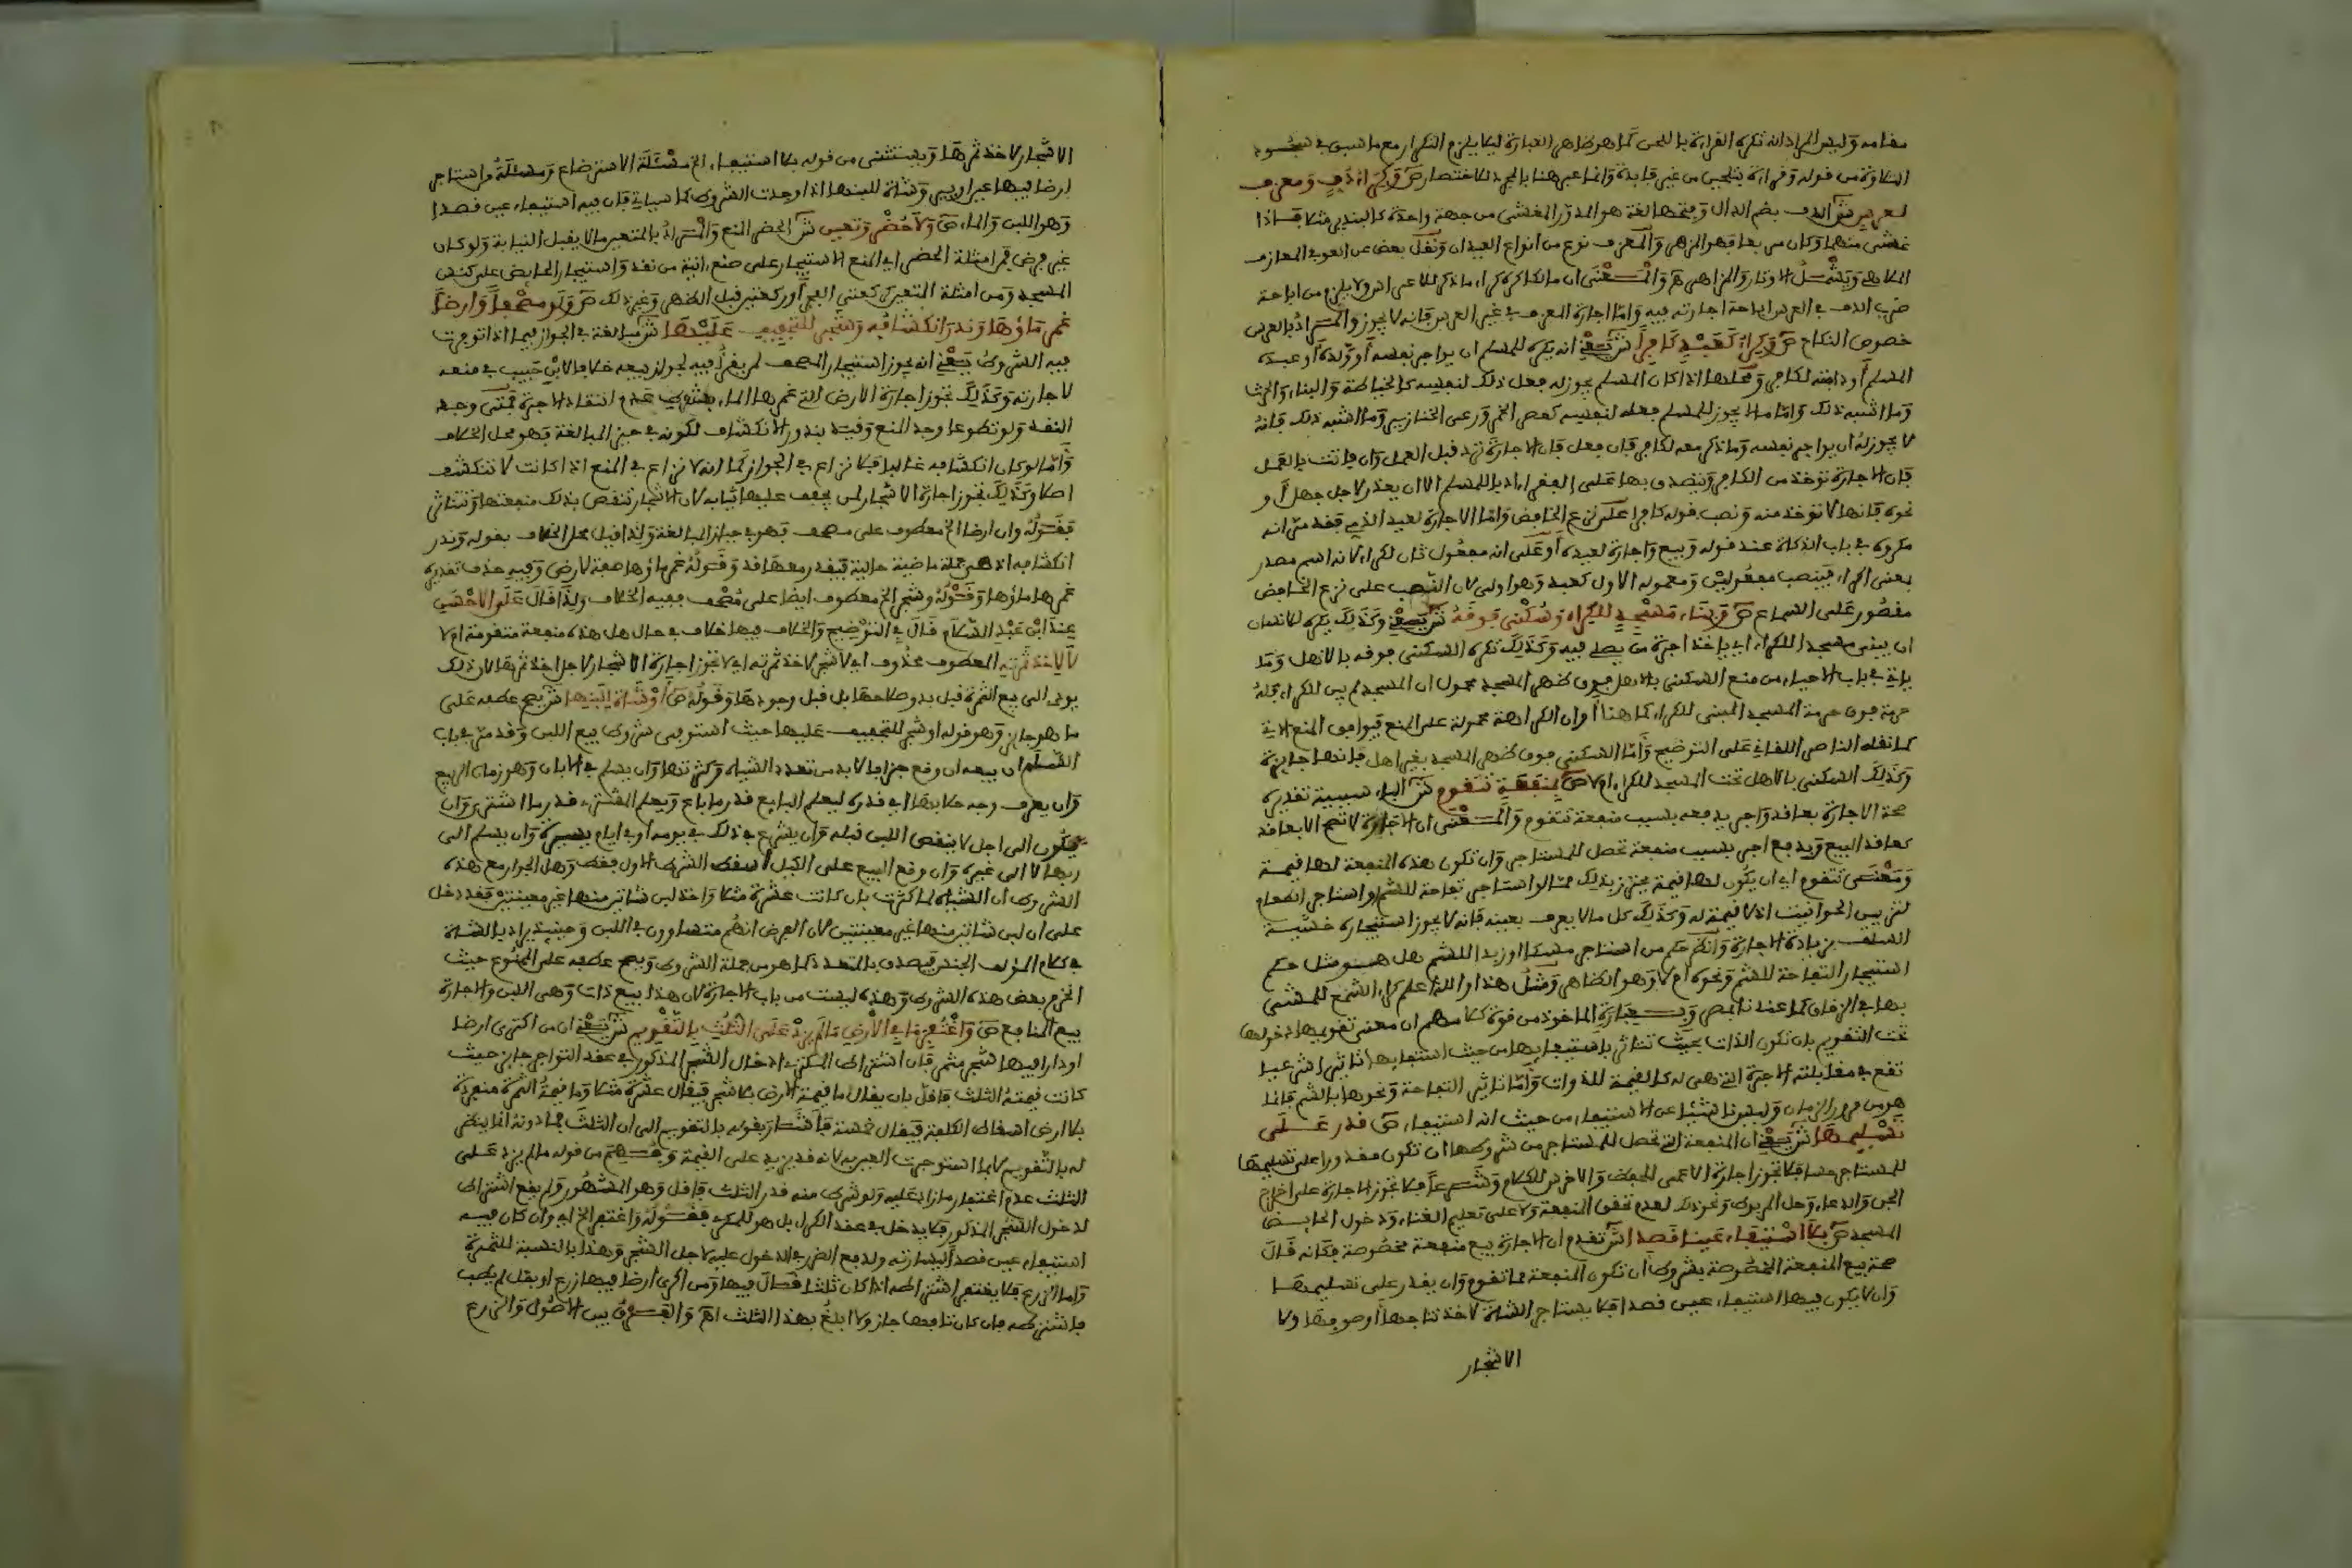 مقامه وليس المراد انه تكره القراءة باللحن كما هو ظاهر العبارة ليلا يلزم التكرار مع ما سبق في سجود
التلاوة من قوله وقراءة بتلحين من غير فايدة وانما عبر هنا بالجر للاختصار ص وكراء دف ومعزف
لعرس ش الدف بضم الدال وفتحها لغة هو المدور المغشى من جهة واحدة كالبندير مثلا فاذا
غشي منهما وكان مربعا فهو المزهر والمعزف نوع من انواع العيدان ونقل بعض عن العوفي المعازف
الملاهي ويشمل الاوتار والمزاهر هـ والمعنى ان مالكا كره كراء ما ذكر للاعراس ولا يلزم من اباحة
ضرب الدف في العرس اباحة اجارته فيه واما اجارة المعزف في غير العرس فانه لا يجوز والمراد بالعرس
خصوص النكاح ص وكراء كعبد كافرا ش يعني انه يكره للمسلم ان يواجر نفسه او ولده او عبده
المسلم او دابته لكافر ومحلها اذا كان المسلم يجوز له فعل ذلك لنفسه كالخياطة والبناء والحرث
وما اشبه ذلك واما ما لا يجوز للمسلم فعله لنفسه كعصر الخمر ورعي الخنازير وما اشبه ذلك فانه
لا يجوز له ان يواجر نفسه وما ذكر معه لكافر فان فعل فان الاجارة ترد قبل العمل وان فاتت بالعمل
فان الاجارة توخذ من الكافر ويتصدق بها على الفقراء ادبا للمسلم الا ان يعذر لاجل جهل او
نحوه فانها لا توخذ منه ونصب قوله كافرا على نزع الخافض واما الاجارة لعبد الذمي فقد مر انه
مكروه في باب الذكاة عند قوله وبيع واجارة لعبده او على انه مفعول ثان لكراء لانه اسم مصدر
بمعنى اكراء فينصب مفعولين ومعموله الاول كعبد وهو اولى لان النصب على نزع الخافض
مقصور على السماع ص وبناء مسجد للكراء وسكنى فوقه ش يعني وكذلك يكره للانسان
ان يبني مسجدا للكراء اي ياخذ اجرة ممن يصلي فيه وكذلك تكره السكنى فوقه بالاهل وما
ياتي في باب الاحياء من منع السكنى بالاهل فوق ظهر المسجد محمول ان المسجد لم يبن للكراء فله
حرمة فوق حرمة المسجد المبني للكراء كما هنا او ان الكراهة محمولة على المنع فيوافق المنع الاتي
كما نقله الناصر اللقاني على التوضيح واما السكنى فوق ظهر المسجد بغير اهل فانها جايزة
وكذلك السكنى بالاهل تحت المسجد للكراء ام لا ص بمنفعة تتقوم ش الباء سببية تقديره
صحة الاجارة بعاقد واجر يدفعه بسبب منفعة تتقوم والمعنى ان الاجارة لا تصح الا بعاقد
كعاقد البيع ويدفع اجر بسبب منفعة تحصل للمستاجر وان تكون هذه المنفعة لها قيمة
ومعنى تتقوم اي ان يكون لها قيمة يحترز بذلك عما لو استاجر تفاحة للشم او استاجر الطعام
لتزيين الحوانيت اذ لا قيمة له وكذلك كل ما لا يعرف بعينه فانه لا يجوز استيجاره خشية
السلف بزيادة الاجارة وانظر حكم من استاجر مسكا او زبدا للشم هل هو مثل حكم
استيجار التفاحة للشم ونحوه ام لا وهو الظاهر ومثل هذا والله اعلم كراء الشمع للمشي
بها في الزفاف كما عندنا بمصر وبعبارة الماخوذ من قوة كلامهم ان معنى تقويمها دخولها
تحت التقويم بان تكون الذات بحيث تتاثر باستيفائها من حيث استيفاؤها تاثيرا شرعيا
تقع في مقابلته الاجرة التي هي له كالقيمة للذوات واما تاثير التفاحة ونحوها بالشم فانما
هو من مرور الزمان وليس ناشئا عن الاستيفاء من حيث انه استيفاء ص قدر على
تسليمها ش يعني ان المنفعة التي تحصل للمستاجر من شروطها ان تكون مقدورا على تسليمها
للمستاجر حسا فلا تجوز اجارة الاعمى للحفظ والاخرس للكلام وشرعا فلا تجوز الاجارة على اخراج
الجن والدعاء وحل المربوط ونحو ذلك لعدم تحقق المنفعة ولا على تعليم الغناء ودخول الحايض
المسجد ص بلا استيفاء عين قصدا ش تقدم ان الاجارة بيع منفعة مخصوصة فكانه قال
صحة بيع المنفعة المخصوصة بشروط ان تكون المنفعة مما تقوم وان يقدر على تسليمها
وان لا يكون فيها استيفاء عين قصدا فلا يستاجر الشاة لاخذ نتاجها او صوفها ولا
الاشجار
الاشجار لاخذ ثمرها ويستثنى من قوله بلا استيفاء الخ مسئلة الاسترضاع ومسئلة من استاجر
ارضا فيها عين او بير وشاة للبنها اذا وجدت الشروط كما سياتي فان فيه استيفاء عين قصدا
وهو اللبن والماء ص ولا حظر وتعين ش الحظر المنع والمراد بالمتعين ما لا يقبل النيابة ولو كان
غير فرض فمن امثلة الحظر اي المنع الاستيجار على صنع انية من نقد واستيجار الحايض على كنس
المسجد ومن امثلة التعين كركعتي الفجر او ركعتين قبل الظهر وغير ذلك ص ولو مصحفا وارضا
غمر ماؤها وندر انكشافه وشجرا لتجفيف عليها ش مبالغة في الجواز فيما اذا توفرت
فيه الشروط يعني انه يجوز استيجار المصحف لمن يقرا فيه لجواز بيعه خلافا لابن حبيب في منعه
لاجارته وكذلك تجوز اجارة الارض التي غمرها الماء بشرط عدم انتقاد الاجرة فمتى وجد
النقد ولو تطوعا وجد المنع وقيد بندور الانكشاف لكونه في حيز المبالغة وهو محل الخلاف
واما لو كان انكشافه غالبا فلا نزاع في الجواز كما انه لا نزاع في المنع اذا كانت لا تنكشف
اصلا وكذلك تجوز اجارة الاشجار لمن يجفف عليها ثيابه لان الاشجار تنقص بذلك منفعتها وتتاثر
فقوله وارضا الخ معطوف على مصحف فهو في حيز المبالغة ولذا قيل محل الخلاف بقوله وندر
انكشافه اذ هي جملة ماضية حالية فيقدر معها قد وقوله غمر ماؤها صفة لارض وفيه حذف تقديره
غمرها ماؤها وقوله وشجرا الخ معطوف ايضا على مصحف ففيه الخلاف ولذا قال على الاحسن
عند ابن عبد السلام قال في التوضيح والخلاف فيها خلاف في حال هل هذه منفعة متقومة ام لا
لا لاخذ ثمرته المعطوف محذوف اي لا شجر لاخذ ثمرته اي لا تجوز اجارة الاشجار لاجل اخذ ثمرها لان ذلك
يودي الى بيع الثمرة قبل بدو صلاحها بل قبل وجودها وقوله ص او شاة للبنها ش يصح عطفه على
ما هو جايز وهو قوله او شجر للتجفيف عليها حيث استوفى شروط بيع اللبن وقد مر في باب
السلم ان بيعه ان وقع جزافا لا بد من تعدد الشياه وكثرتها وان يسلم في الابان وهو زمان الربيع
وان يعرف وجه حلابها اي قدره ليعلم البايع قدر ما باع ويعلم المشتري قدر ما اشترى وان
يكون الى اجل لا ينقص اللبن قبله وان يشرع في ذلك في يومه او في ايام يسيرة وان يسلم الى
ربها لا الى غيره وان وقع البيع على الكيل اسقط الشرط الاول فقط وهل الجواز مع هذه
الشروط ان الشياه لما كثرت بان كانت عشرة مثلا واخذ لبن شاتين منها غير معينتين فقد دخل
على ان لبن شاتين منها غير معينتين لان الفرض انهم متساوون في اللبن وحينئذ يراد بالشاة
في كلام المؤلف الجنس فيصدق بالمتعدد كما هو من جملة الشروط ويصح عطفه على الممنوع حيث
انخرم بعض هذه الشروط وهذه ليست من باب الاجارة لان هذا بيع ذات وهي اللبن والاجارة
بيع المنافع ص واغتفر ما في الارض ما لم يزد على الثلث بالتقويم ش يعني ان من اكترى ارضا
او دارا فيها شجر مثمر فان اشتراط المكتري ادخال الشجر المذكور في عقد التواجر جايز حيث
كانت قيمته الثلث فاقل بان يقال ما قيمة الارض بلا شجر فيقال عشرة مثلا وما قيمة الثمرة منفردة
بلا ارض اسقاط الكلفة فيقال خمسة فاشار بقوله بالتقويم الى ان الثلث فما دونه انما ينظر
له بالتقويم لا بما استوجرت الغيريه لانه قد يزيد على القيمة ويفهم من قوله ما لم يزد على
الثلث عدم اغتفار ما زاد عليه ولو شرط منه قدر الثلث فاقل وهو المشهور ولو لم يقع اشتراط
لدخول الشجر المذكور فلا يدخل في عقد الكراء بل هو للمكري فقوله واغتفر الخ اي وان كان فيه
استيفاء عين قصدا ليسارته ولدفع الضرر في الدخول عليه لاجل الشجر وهذا بالنسبة للثمرة
واما الزرع فلا يغتفر اشتراطه اذا كان ثلثا قال فيها ومن اكرى ارضا فيها زرع او بقل لم يطب
فاشترطه فان كان تافها جاز ولا ابلغ بهذا الثلث اهـ والفرق بين الاصول والزرع